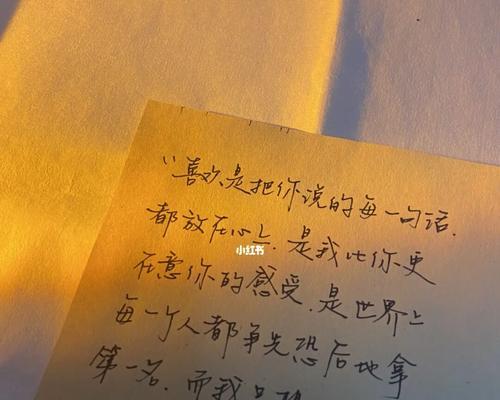 “喜欢是把你说的每一句话.
都放在心上.是我比你更
在意你的感受.是世界上
每一个人都争先恐后地拿
第一名.而我只
小红书